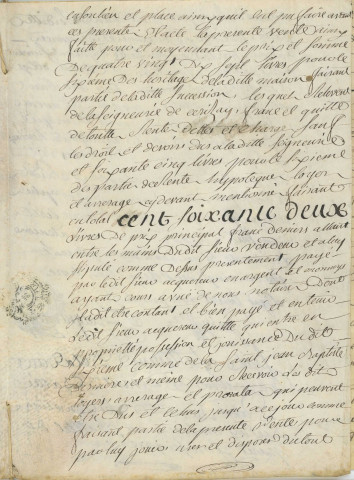 en son lieu et place ainsy quil eut pu faire avant
ces presentes et acte la presente vente
faitte pour et moyennant le prix et somme
de quatre vingt dix sept livres pour le
sixieme des heritages de laditte maison faisant
partie de laditte succession lesquels relevent
de la seigneurie de franc et quitte
de toutte rente dettes et charges sauf
les droits et devoirs dus a laditte seigneurie
et soixante cinq livres pour le sixieme
du partie de rente hypoteque loyer
et arrerages cy devant mentionné faisant
en total cent soixante deux
livres de prix principal franc deniers allant
entre les mains dudit sieur vendeur et a luy
stipulé comme dessus presentement payé
par ledit sieur acquereur en argent et monnoye
ayant cours a vue de nous notaire dont
il a dit etre contant et bien payé et en tient
ledit sieur acquereur quitte qui entre en
proprietté possession et jouissance dudit
sixieme comme de la saint jean baptiste
derniere et meme pour recevoir les dits
loyers arrerages et prorata qui peuvent
etre dus et echus jusqu'a ce jour comme
faisant partie de la presente vente pour
par luy jouir user et disposer du tout